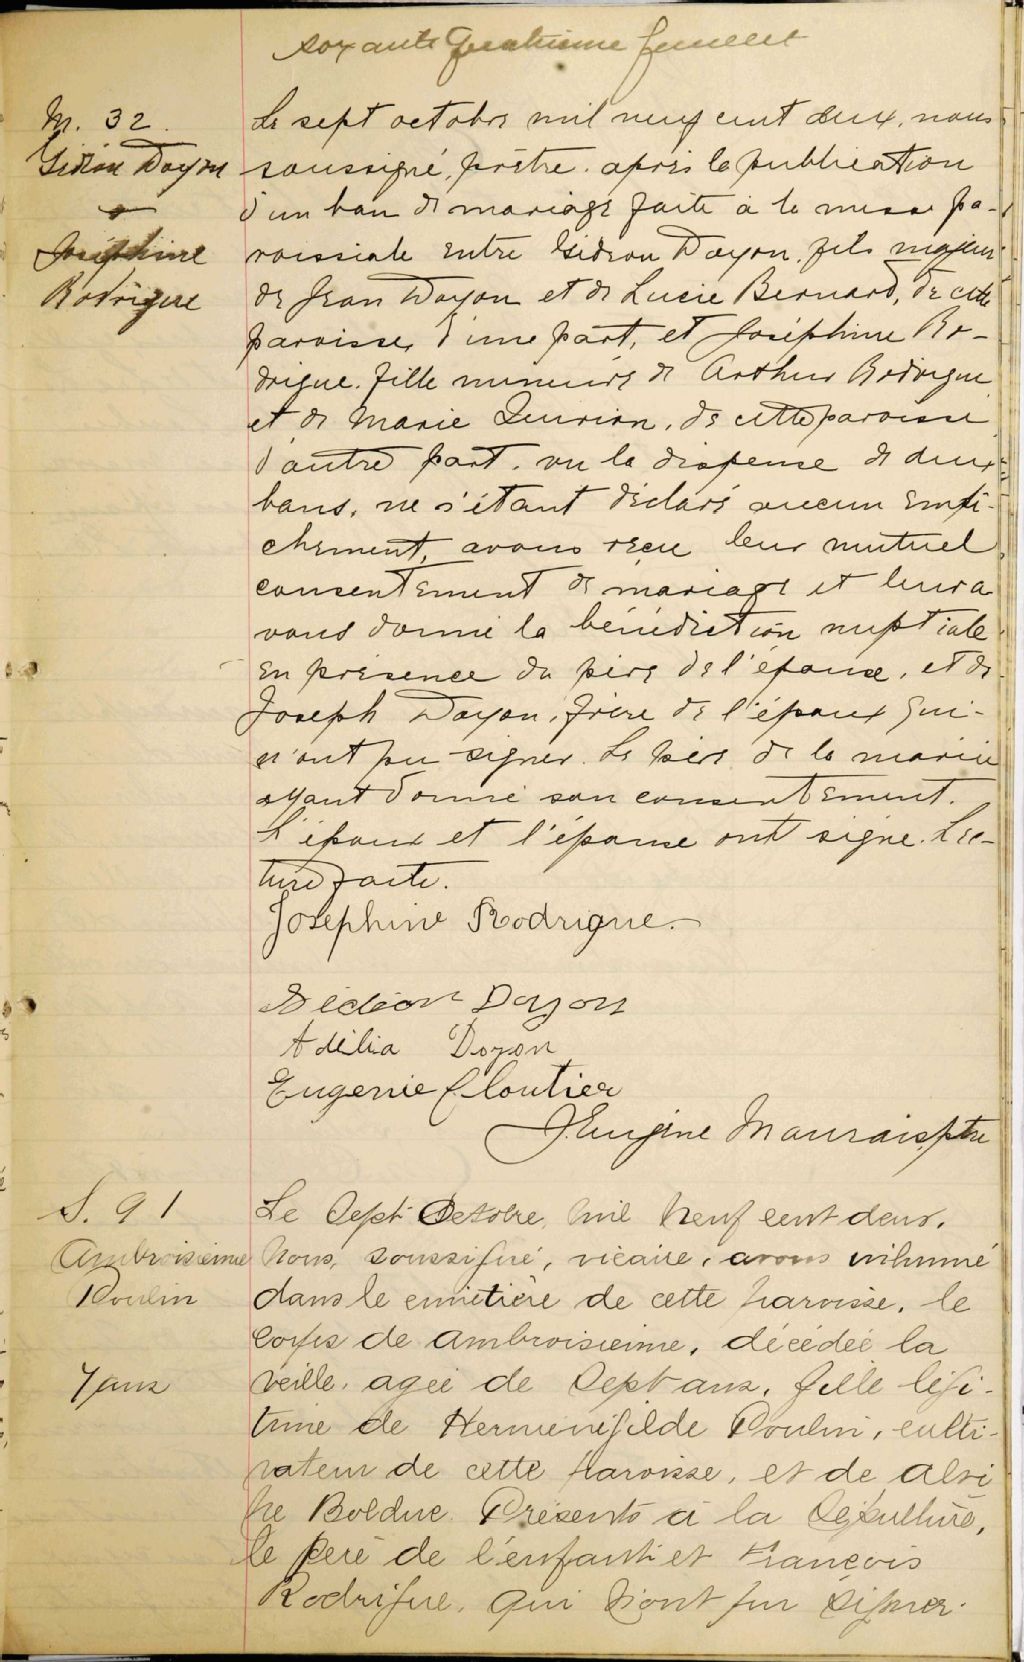 soixante quatrieme feuillet
M. 32.
Gédéon Doyon
&
Joséphine
Rodrigue
Le sept octobre mil neuf cent deux, nous
soussigné, prêtre, après la publication
d'un ban de mariage faite à la messe pa-
roissiale entre Gédéon Doyon, fils majeur
de Jean Doyon et de Lucie Bernard, de cette
paroisse, d'une part, et Joséphine Ro-
drigue, fille mineure de Arthur Rodrigue
et de Marie Quirion, de cette paroisse
d'autre part, vu la dispense de deux
bans, ne s'étant déclaré aucun empê-
chement, avons reçu leur mutuel
consentement de mariage et leur a
vons donné la bénédiction nuptiale
en présence du père de l'épouse, et de
Joseph Doyon, frère de l'époux qui
n'ont pu signer. Le père de la mariée
ayant donné son consentement.
L'époux et l'épouse ont signé. Lec-
ture faite.
Joséphine Rodrigue.
Gédéon Doyon
Adélia Doyon
Eugenie Cloutier
J. Eugène Maurais, ptre
S. 91
Ambroisienne
Poulin
7 ans
Le Sept Octobre, mil neuf cent deux,
Nous, soussigné, vicaire, avons inhumé
dans le cimetière de cette paroisse, le
corps de Ambroisienne, décédée la
veille, agée de Sept ans, fille légi-
time de Herménégilde Poulin, culti-
vateur de cette paroisse, et de Alvi
ne Bolduc. Présents à la Sépulture,
le père de l'enfant et François
Rodrigue, qui n'ont pu signer.